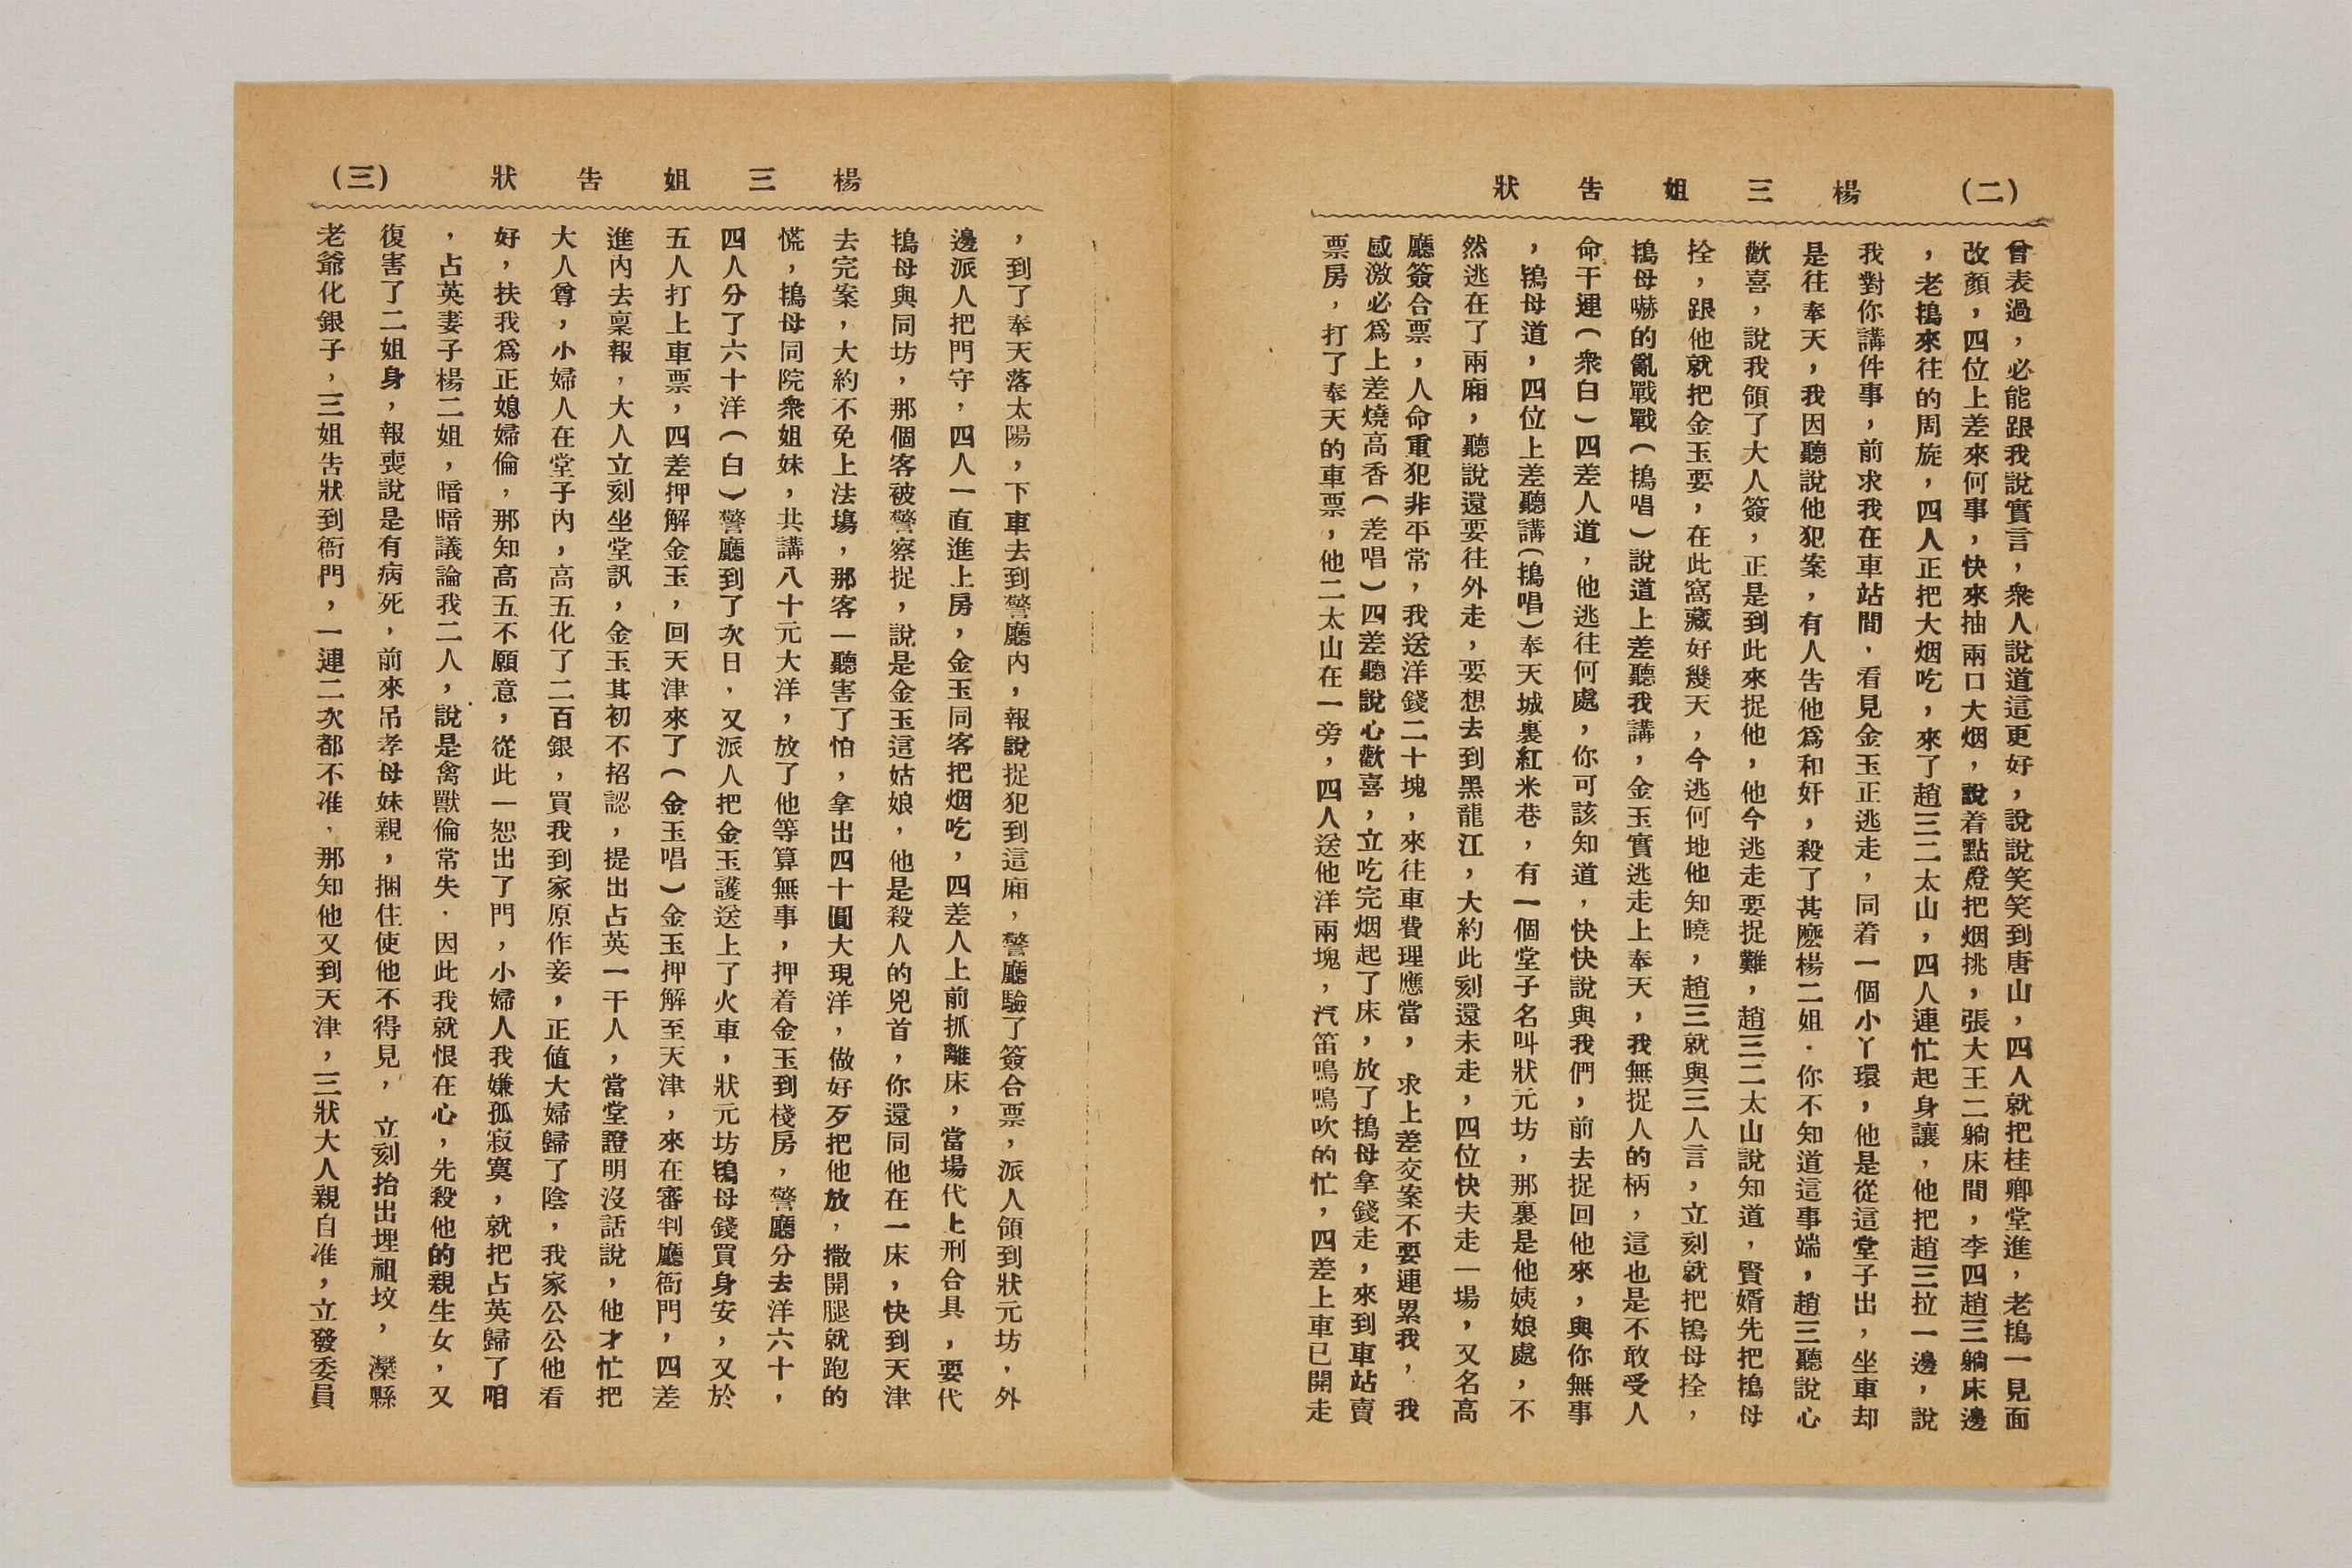 （二）　楊三姐告狀
曾表過，必能跟我說實言，衆人說道這更好，說說笑笑到唐山，四人就把桂卿堂進，老鴇一見面
改顏，四位上差來何事，快來抽兩口大烟，說着點燈把烟挑，張大王二躺床間，李四趙三躺床邊
，老鴇來往的周旋，四人正把大烟吃，來了趙三二太山，四人連忙起身讓，他把趙三拉一邊，說
我對你講件事，前求我在車站間．看見金玉正逃走，同着一個小丫環，他是從這堂子出，坐車却
是往奉天，我因聽說他犯案，有人告他爲和奸，殺了甚麽楊二姐．你不知道這事端，趙三聽說心
歡喜，說我領了大人簽，正是到此來捉他，他今逃走要捉難，趙三二太山說知道，賢婿先把鴇母
拴，跟他就把金玉要，在此窩藏好幾天，今逃何地他知曉，趙三就與三人言，立刻就把鴇母拴，
鴇母嚇的亂戰戰（鴇唱）說道上差聽我講，金玉實逃走上奉天，我無捉人的柄，這也是不敢受人
命干連（衆白）四差人道，他逃往何處，你可該知道，快快說與我們，前去捉回他來，與你無事
，鴇母道，四位上差聽講（鴇唱）奉天城裏紅米巷，有一個堂子名叫狀元坊，那裏是他姨娘處，不
然逃在了兩廂，聽說還要往外走，要想去到黑龍江，大約此刻還未走，四位快夫走一場，又名高
廳簽合票，人命重犯非平常，我送洋錢二十塊，來往車費理應當，求上差交案不要連累我，我
感激必爲上差燒高香（差唱）四差聽說心歡喜，立吃完烟起了床，放了鴇母拿錢走，來到車站賣
票房，打了奉天的車票，他二太山在一旁，四人送他洋兩塊，汽笛鳴鳴吹的忙，四差上車已開走
楊三姐告狀　（三）
，到了奉天落太陽，下車去到警廳内，報說捉犯到這廂，警廳驗了簽合票，派人領到狀元坊，外
邊派人把門守，四人一直進上房，金玉同客把烟吃，四差人上前抓離床，當場代上刑合具，要代
鴇母與同坊，那個客被警察捉，說是金玉這姑娘，他是殺人的兇首，你還同他在一床，快到天津
去完案，大約不免上法塲，那客一聽害了怕，拿出四十圓大現洋，做好歹把他放，撒開腿就跑的
慌，鴇母同院衆姐妹，共講八十元大洋，放了他等算無事，押着金玉到棧房，警廳分去洋六十，
四人分了六十洋（白）警廳到了次日．又派人把金玉護送上了火車，狀元坊鴇母錢買身安，又於
五人打上車票，四差押解金玉，回天津來了（金玉唱）金玉押解至天津，來在審判廳衙門，四差
進内去禀報，大人立刻坐堂訊，金玉其初不招認，提出占英一干人，當堂證明沒話說，他才忙把
大人尊，小婦人在堂子内，高五化了二百銀，買我到家原作妾，正値大婦歸了陰，我家公公他看
好，扶我爲正媳婦倫，那知高五不願意，從此一恕出了門，小婦人我嫌孤寂寞，就把占英歸了咱
，占英妻子楊二姐，暗暗議論我二人，說是禽獸倫常失．因此我就恨在心，先殺他的親生女，又
復害了二姐身，報喪說是有病死，前來吊孝母妹親，捆住使他不得見，立刻抬出埋祖坟，灤縣
老爺化銀子，三姐告狀到衙門，一連二次都不准．那知他又到天津，三狀大人親自准，立發委員